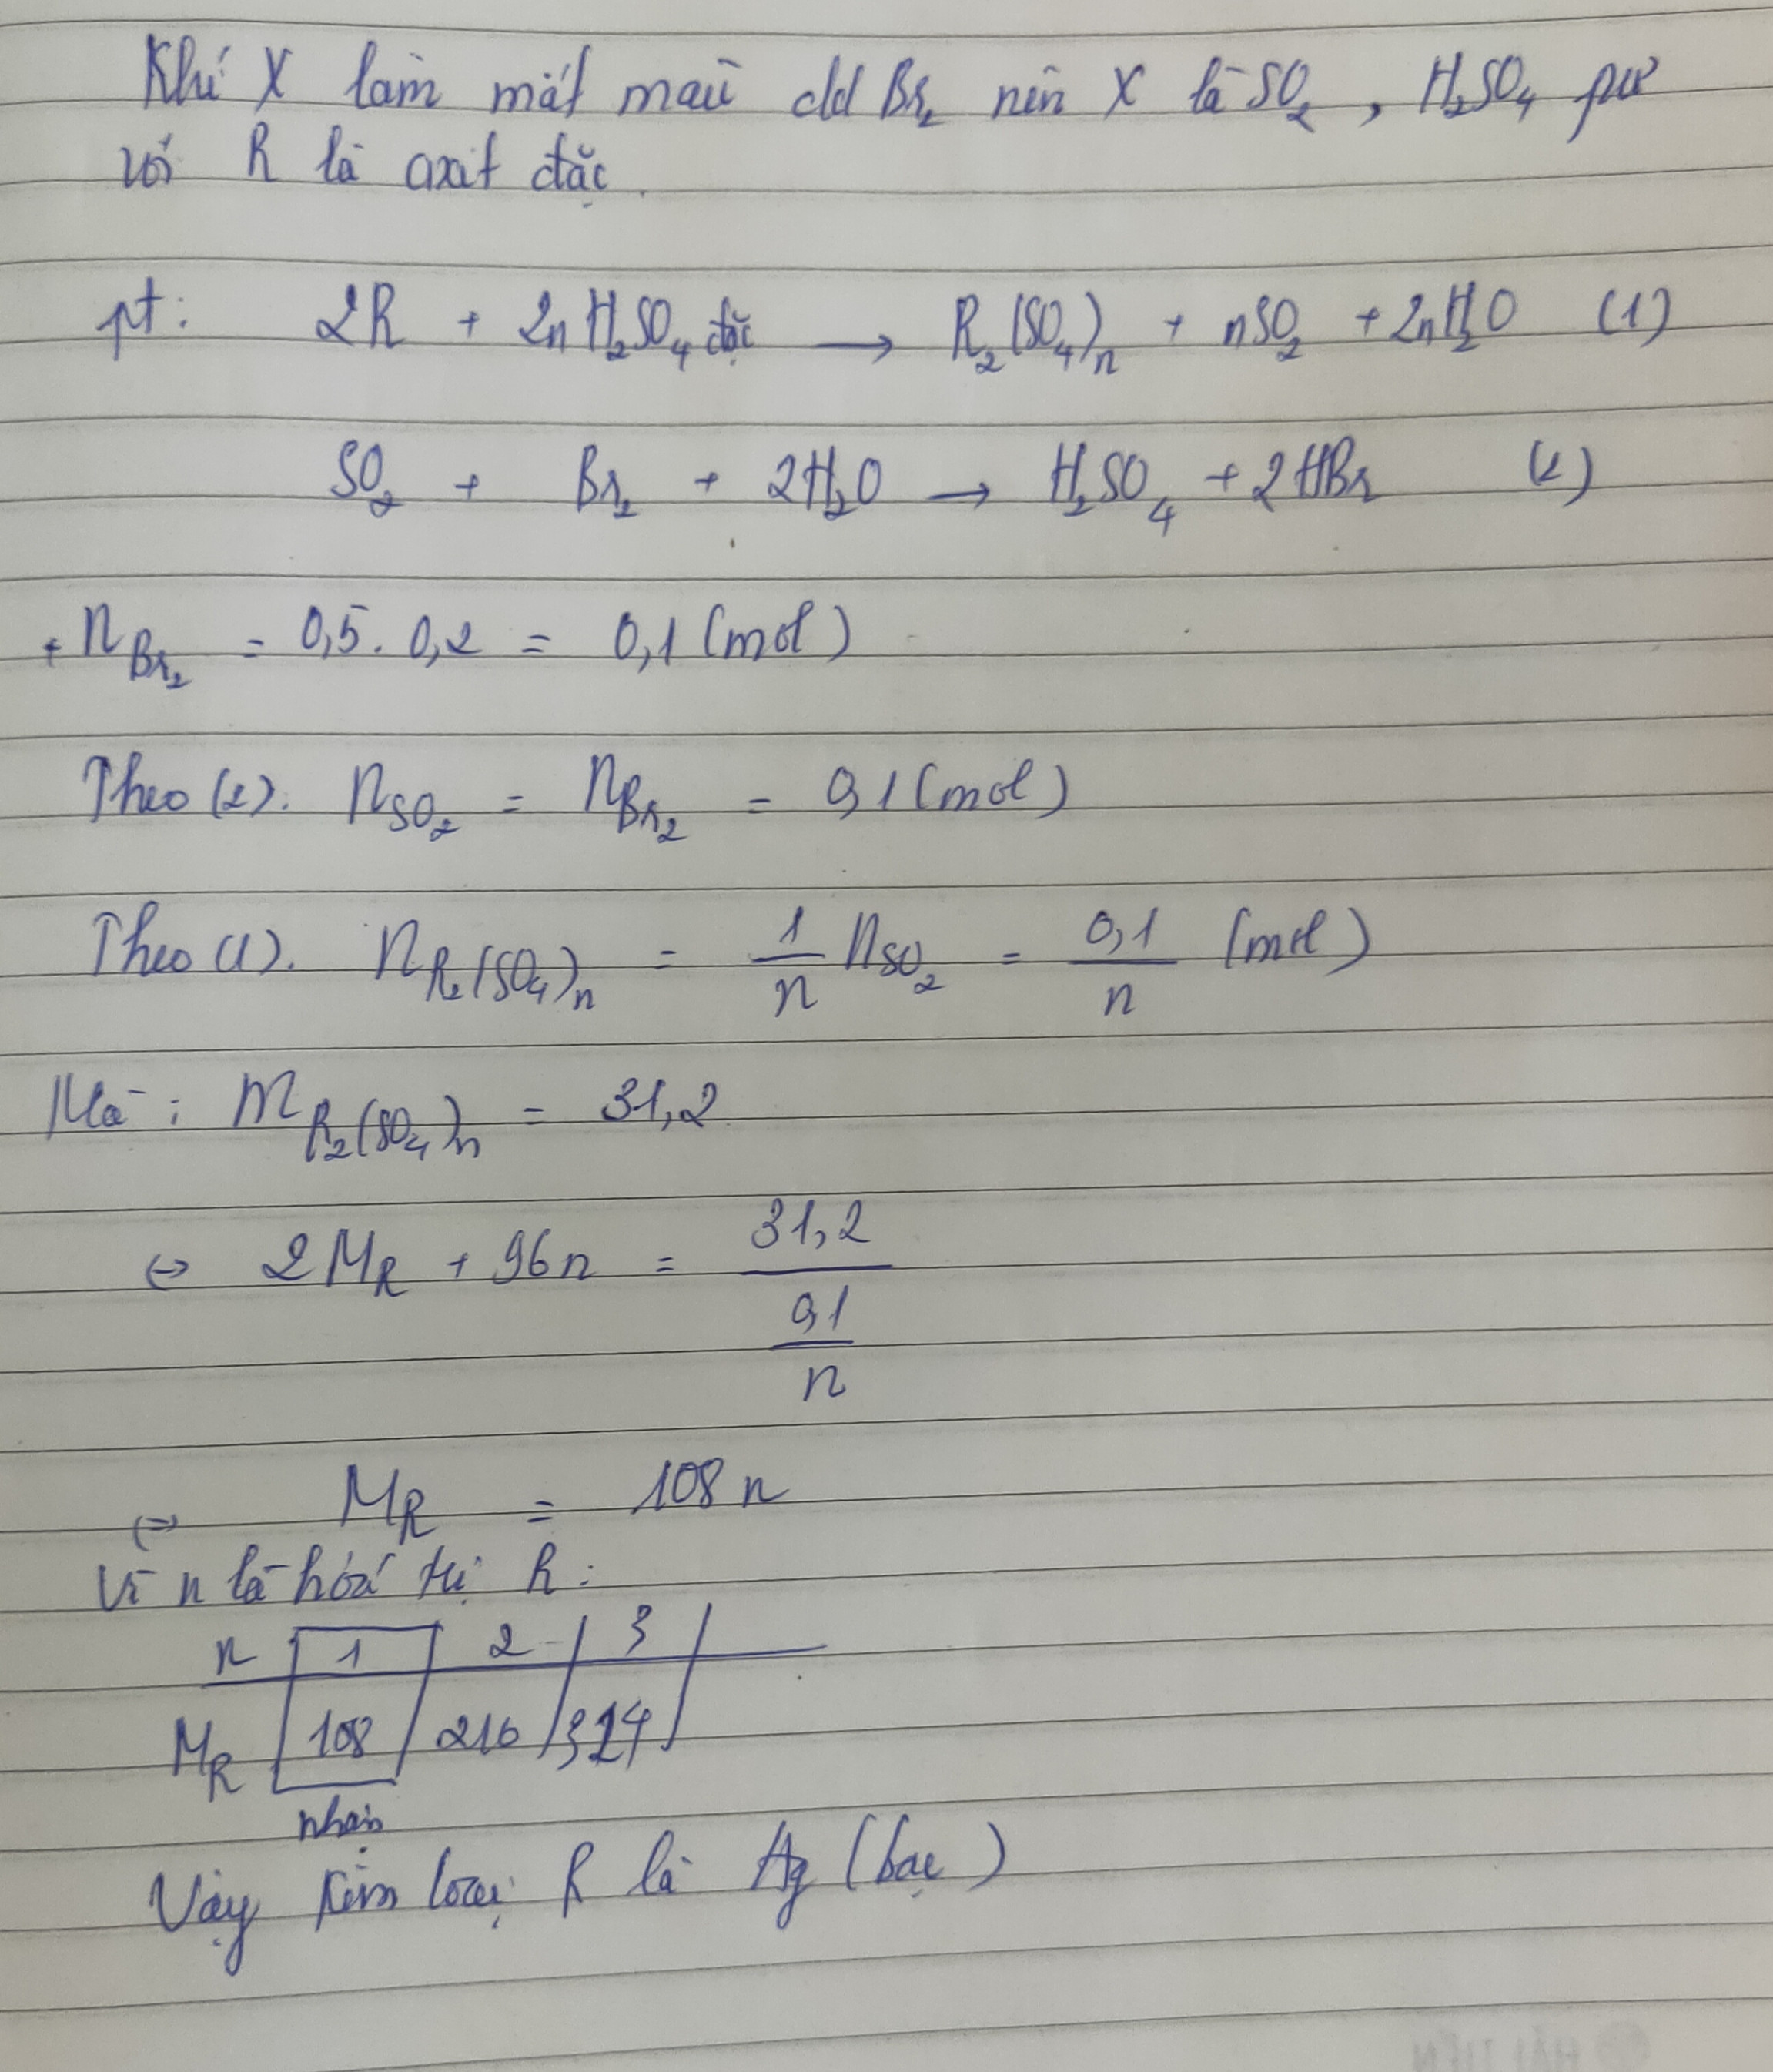 Khí X làm mất màu dd Br₂ nên X là SO₂, H₂SO₄ pư
với R là axit đặc.
pt: 2R + 2nH₂SO₄ đặc → R₂(SO₄)ₙ + nSO₂ + 2nH₂O (1)
SO₂ + Br₂ + 2H₂O → H₂SO₄ + 2HBr (2)
+ n_Br₂ = 0,5 . 0,2 = 0,1 (mol)
Theo (2). n_SO₂ = n_Br₂ = 0,1 (mol)
Theo (1). n_R₂(SO₄)ₙ = 1/n n_SO₂ = 0,1/n (mol)
Mà : m_R₂(SO₄)ₙ = 31,2
⇔ 2M_R + 96n = 31,2 / (0,1/n)
⇔ M_R = 108n
Vì n là hóa trị R :
n | 1 | 2 | 3 |
M_R | 108 | 216 | 324 |
nhận
Vậy kim loại R là Ag (bạc)
HẢI TIẾN